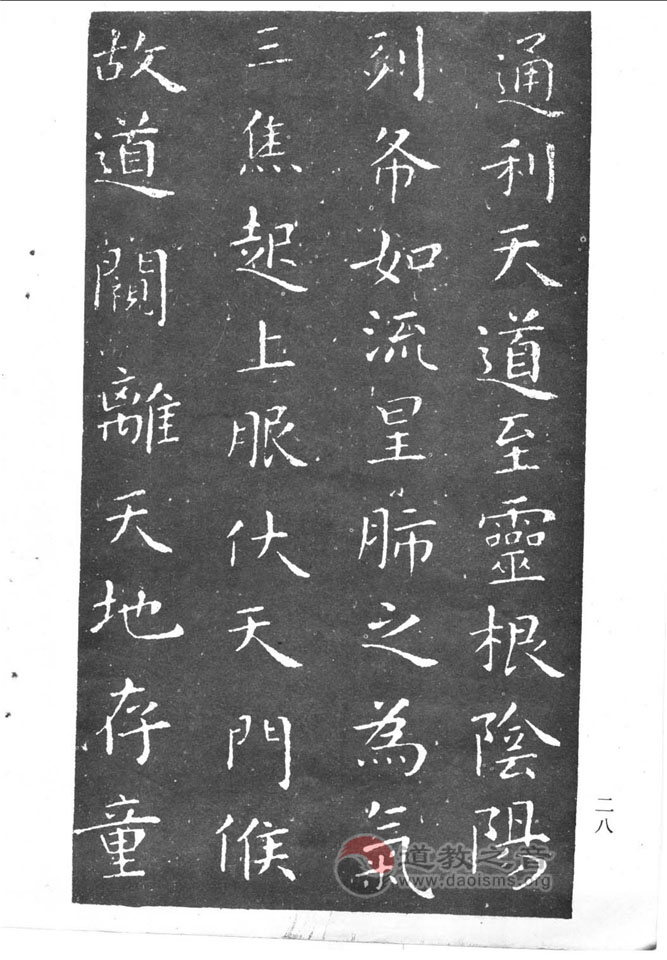 通利天道至靈根陰陽
列布如流星肺之為氣
三焦起上服伏天門候
故道闚離天地存童
二八
道教之音
www.daoisms.org